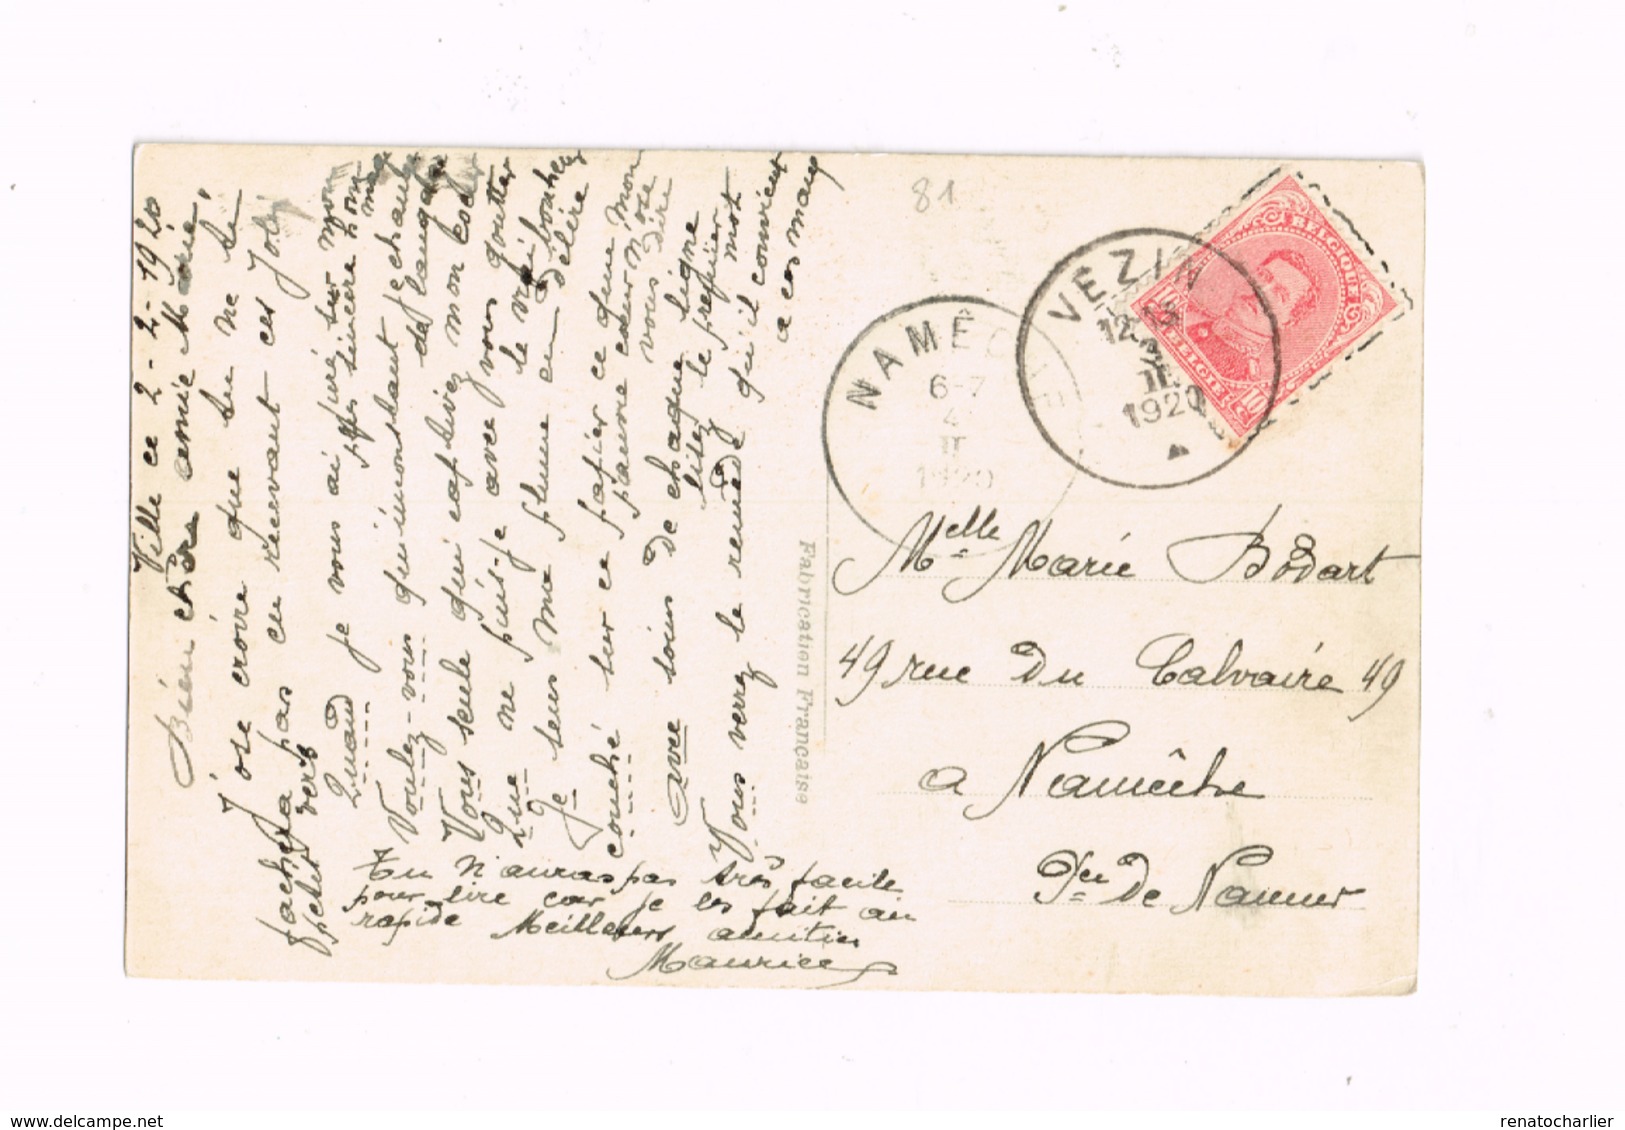 Ville ce 2-2-1920
Bien chère amie Marie,
J'ose croire que tu ne te
fachera pas en recevant ces Jolis
petit vers
Quand je vous ai juré sur mon
plus sincère hom
mage
Voulez-vous qu'inconstant je change
de langage
Vous seule qui captivez mon coeur
Que ne puis-je avec vous goutter
le vrai bonheur
Je sens ma plume en délire
couché sur ce papier ce que mon
pauvre coeur n'ose
vous dire
avec soins de chaque ligne
litez le premier
mot
Vous verrez le remède qu'il convient
a ces maux
Tu n'auras pas très facile
pour lire car je les fait
rapide Meilleurs amitiés
Maurice
Fabrication Française
81
NAMÊCHE
6-7
4
II
1920
VEZIN
12-13
II
1920
BELGIQUE
BELGIE
10
Melle Marie Bodart
49 rue du Calvaire 49
a Namêche
Pce de Namur
renatocharlier